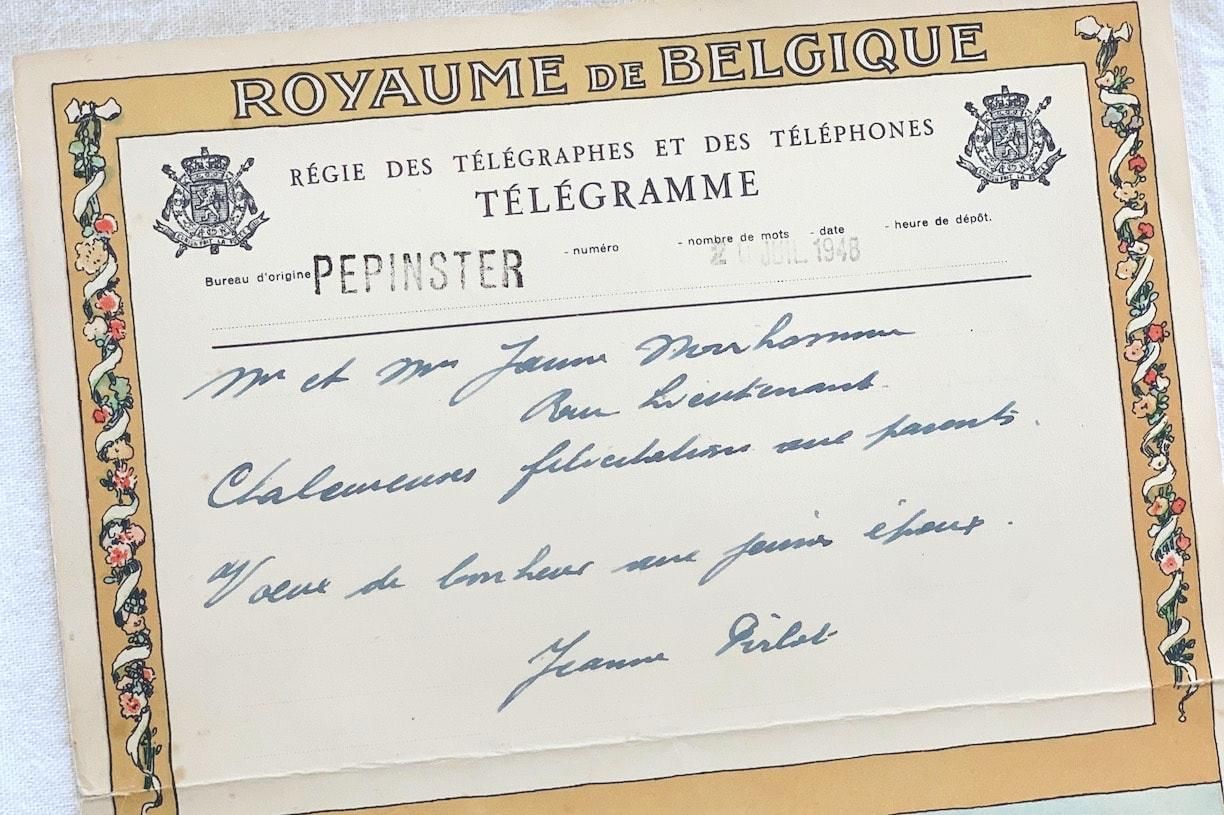 ROYAUME DE BELGIQUE
RÉGIE DES TÉLÉGRAPHES ET DES TÉLÉPHONES
TÉLÉGRAMME
Bureau d'origine PEPINSTER - numéro - nombre de mots - date - heure de dépôt.
JUIL. 1948
Mr et Mme
Rue Lieutenant
Chaleureuses félicitations aux parents.
Voeux de bonheur aux jeunes époux.
Jeanne Pirlot